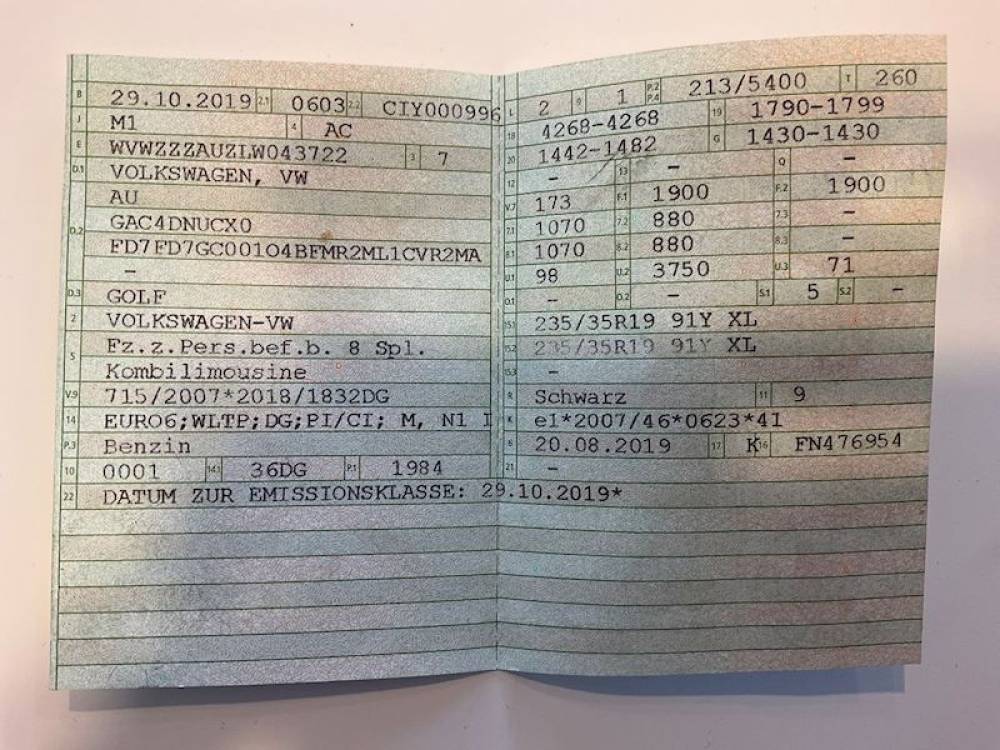 B 29.10.2019 2.1 0603 2.2 CIY000996
J M1 4 AC
E WVWZZZAUZLW043722 3 7
D.1 VOLKSWAGEN, VW
AU
D.2 GAC4DNUCX0
FD7FD7GC001O4BFMR2ML1CVR2MA
–
D.3 GOLF
2 VOLKSWAGEN-VW
5 Fz.z.Pers.bef.b. 8 Spl.
Kombilimousine
V.9 715/2007*2018/1832DG
14 EURO6;WLTP;DG;PI/CI; M, N1 I
P.3 Benzin
10 0001 14.1 36DG P.1 1984
22 DATUM ZUR EMISSIONSKLASSE: 29.10.2019*
L 2 9 1 P.2 P.4 213/5400 T 260
18 4268-4268 19 1790-1799
20 1442-1482 G 1430-1430
12 – 13 – Q –
V.7 173 F.1 1900 F.2 1900
7.1 1070 7.2 880 7.3 –
8.1 1070 8.2 880 8.3 –
U.1 98 U.2 3750 U.3 71
O.1 – O.2 – S.1 5 S.2 –
15.1 235/35R19 91Y XL
15.2 235/35R19 91Y XL
15.3 –
R Schwarz 11 9
K e1*2007/46*0623*41
6 20.08.2019 17 K 16 FN476954
21 –